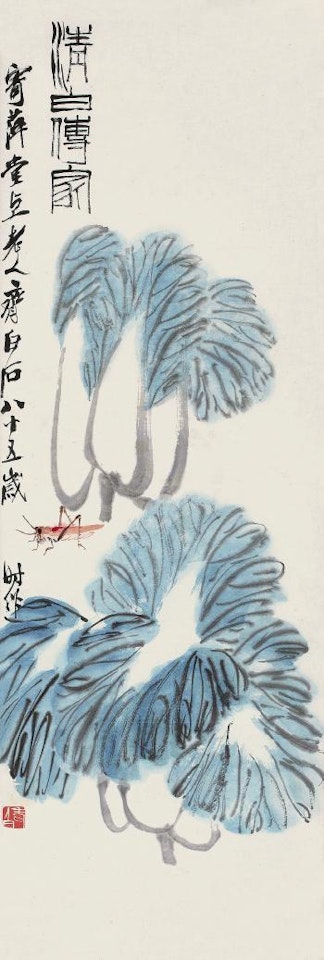 清白傳家
寄萍堂上老人齊白石八十五歲
時作